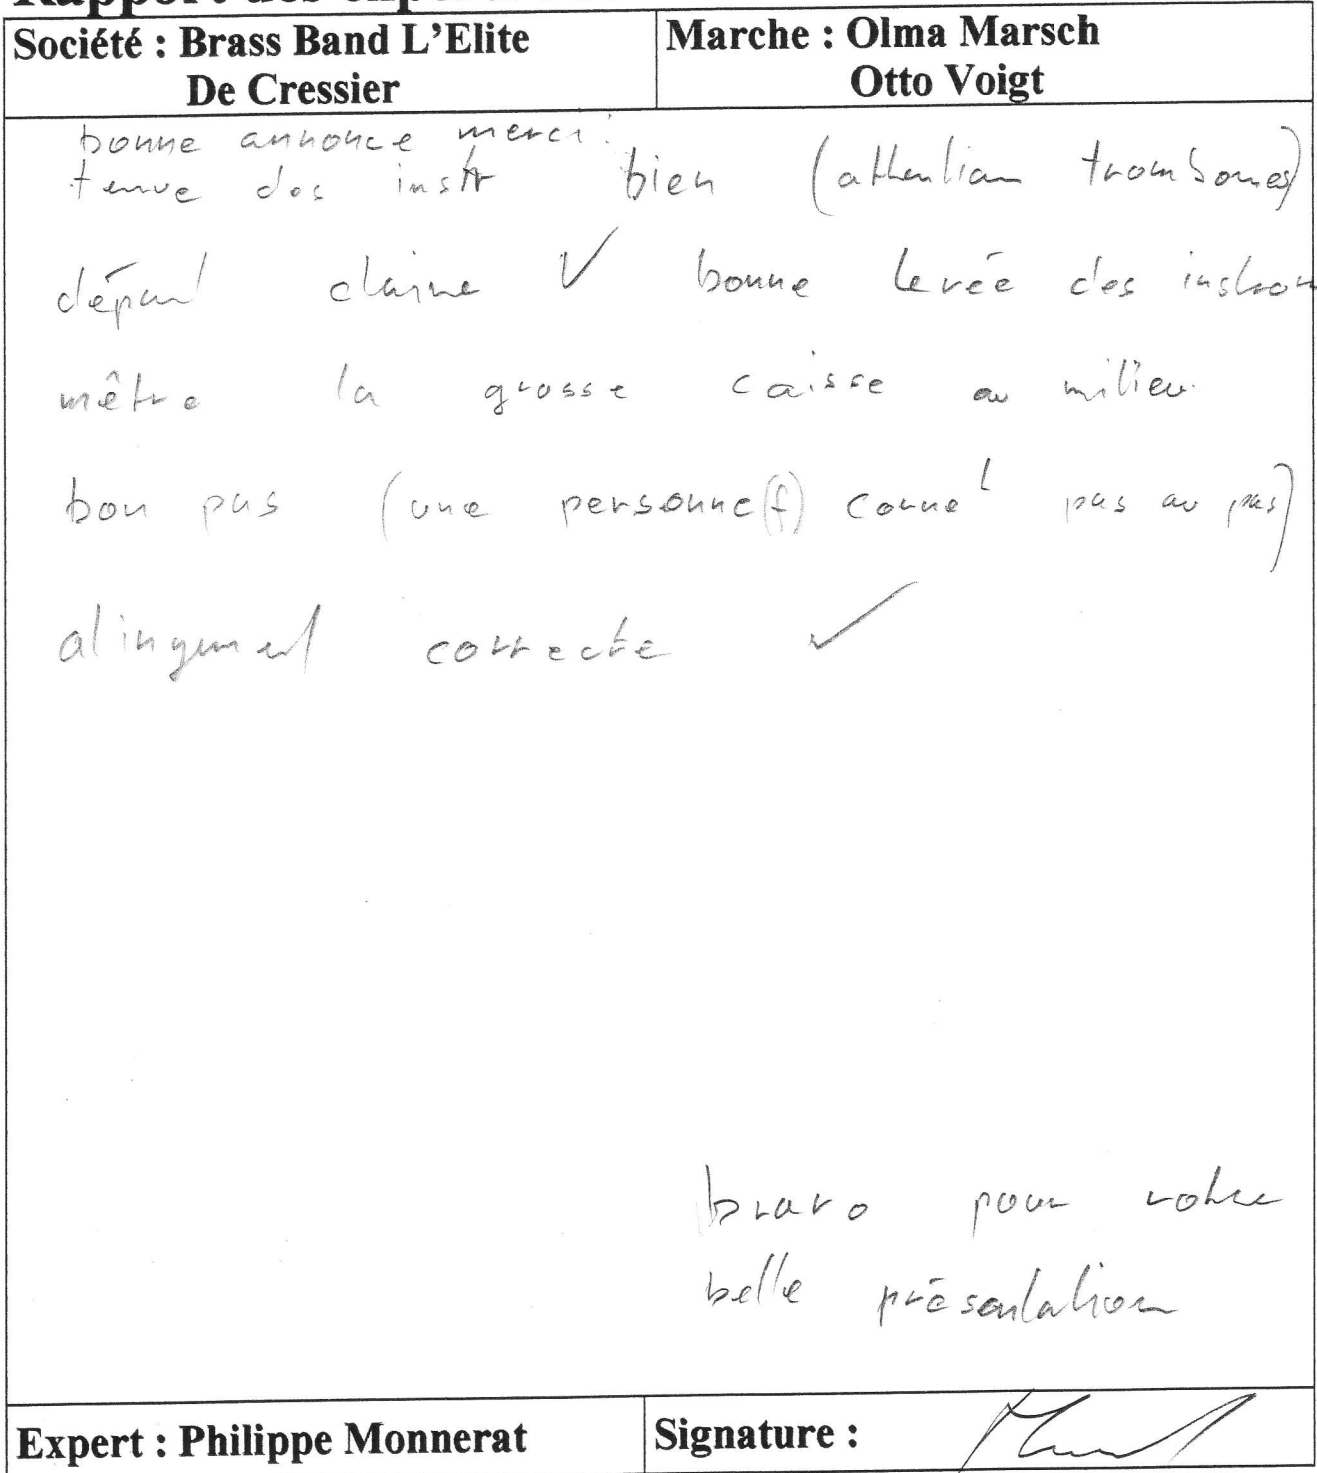 Rapport des
Société : Brass Band L'Elite
De Cressier
Marche : Olma Marsch
Otto Voigt
bonne annonce merci !
tenue des instr bien (attention trombones)
départ claire ✓ bonne levée des instrom
mêtre la grosse caisse au milieu
bon pas (une personne (f) cornet pas au pas)
alingement correcte ✓
bravo pour votre
belle présentation
Expert : Philippe Monnerat
Signature :